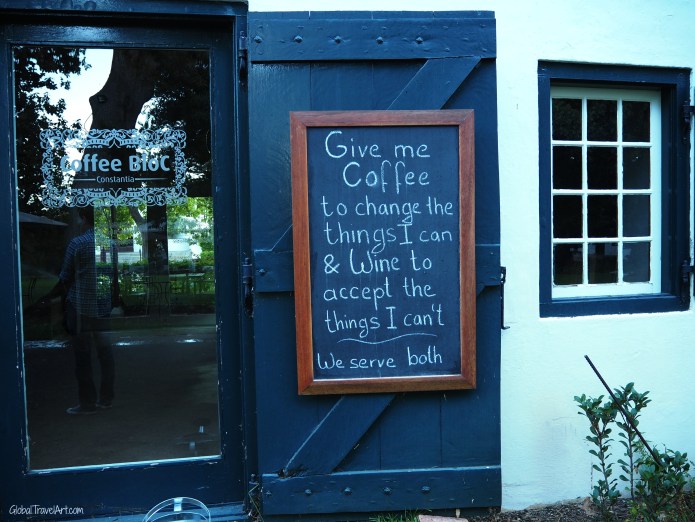 Coffee BloC
Constantia
Give me
Coffee
to change the
things I can
& Wine to
accept the
things I can't
We serve both
GlobalTravelArt.com